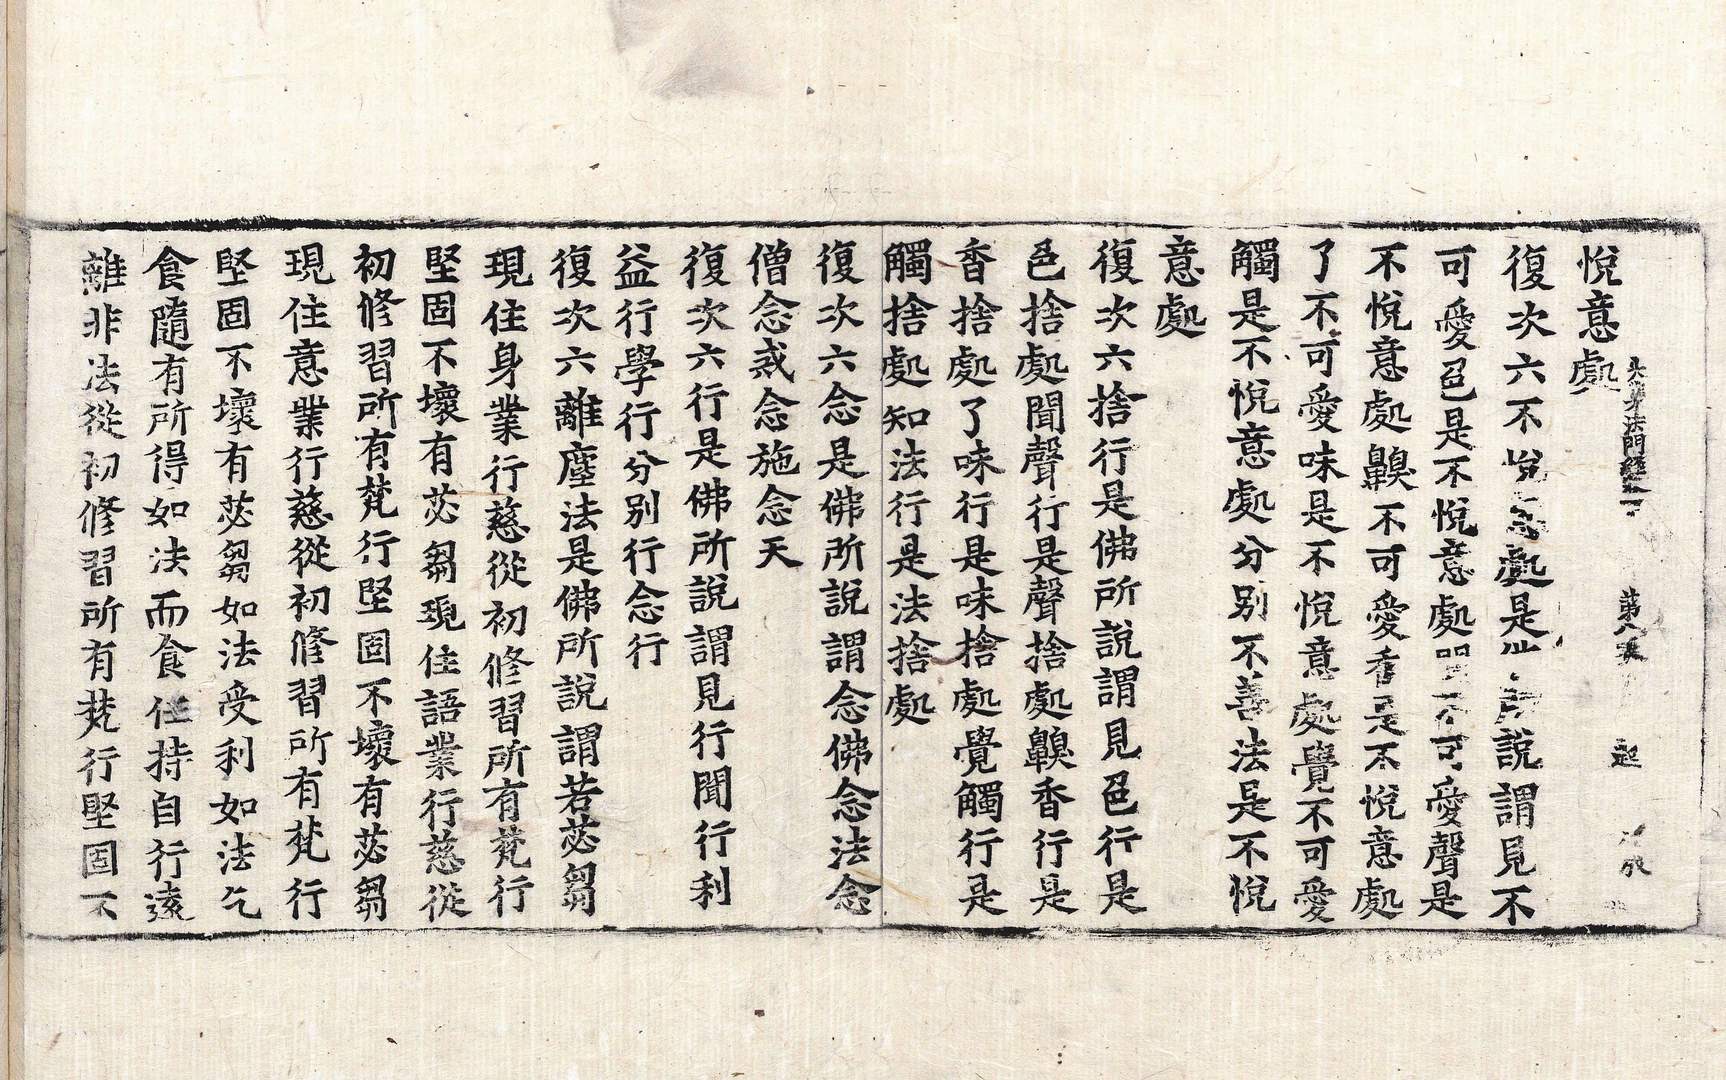 悅意處
大集法門經下 第八張 起
復次六不悅意處是佛所說謂見不
可愛色是不悅意處聞不可愛聲是
不悅意處齅不可愛香是不悅意處
了不可愛味是不悅意處覺不可愛
觸是不悅意處分別不善法是不悅
意處
復次六捨行是佛所說謂見色行是
色捨處聞聲行是聲捨處齅香行是
香捨處了味行是味捨處覺觸行是
觸捨處知法行是法捨處
復次六念是佛所說謂念佛念法念
僧念戒念施念天
復次六行是佛所說謂見行聞行利
益行學行分別行念行
復次六離塵法是佛所說謂若苾芻
現住身業行慈從初修習所有梵行
堅固不壞有苾芻現住語業行慈從
初修習所有梵行堅固不壞有苾芻
現住意業行慈從初修習所有梵行
堅固不壞有苾芻如法受利如法乞
食隨有所得如法而食任持自行遠
離非法從初修習所有梵行堅固不